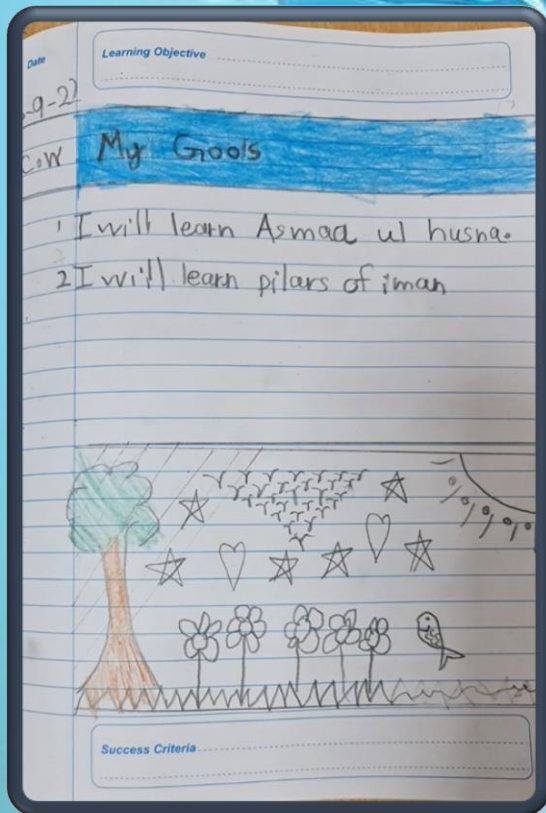 Date
Learning Objective
-9-22
C.W
My Gools
1 I will learn Asmaa ul husna.
2 I will learn pilars of iman
Success Criteria